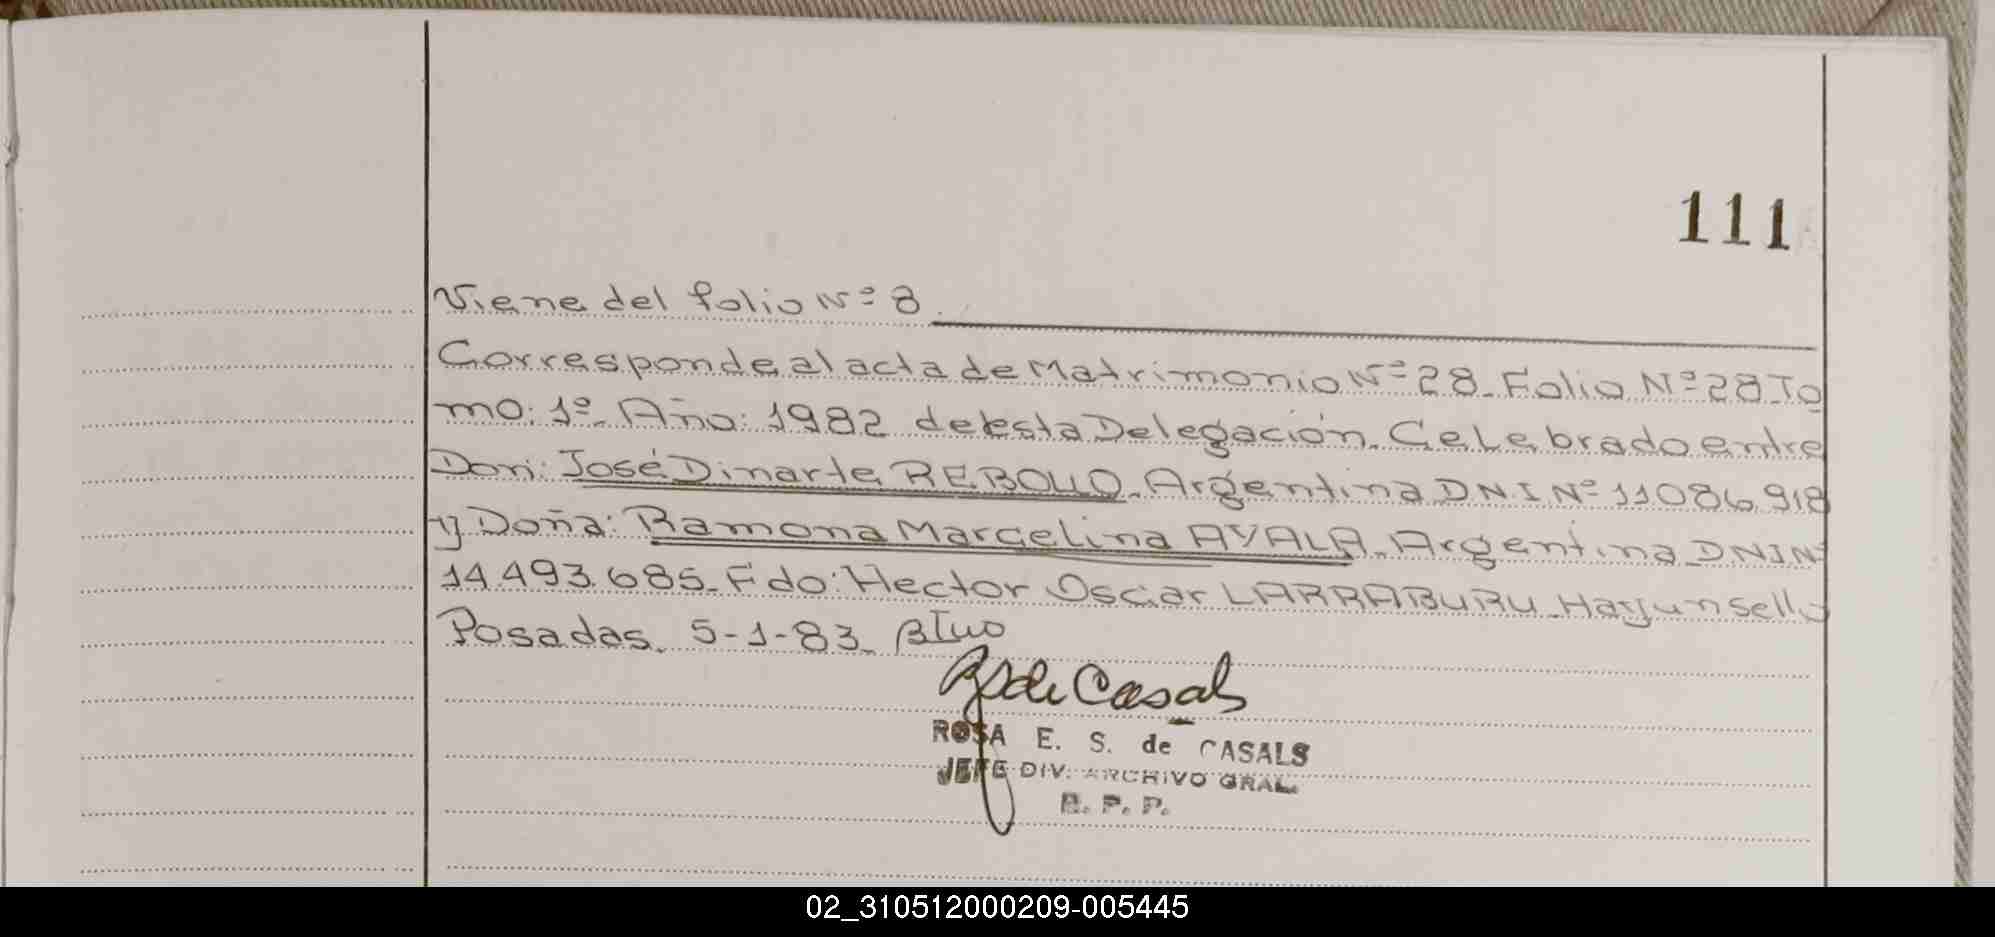 111
Viene del folio Nº 8
Corresponde al acta de Matrimonio Nº 28_ Folio Nº 28_To
mo: 1º_ Año: 1982 de esta Delegación_ Celebrado entre
Don: José Dinarte REBOLLO_ Argentina DNI Nº 11086.918
y Doña: Ramona Marcelina AYALA_ Argentina_DNI Nº
14.493.685_ Fdo: Hector Oscar LARRABURU_ Hay un sello
Posadas_ 5-1-83_
de Casals
ROSA E. S. de CASALS
JEFE DIV. ARCHIVO GRAL.
R. P. P.
02_310512000209-005445